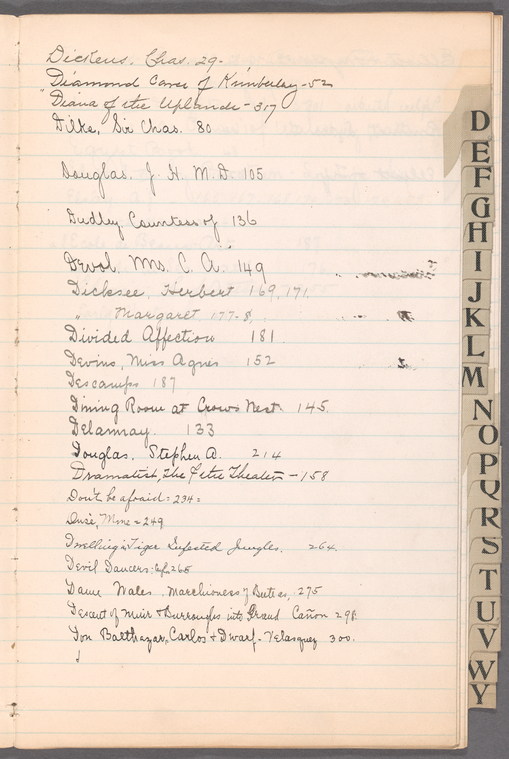 Dickens, Chas. 29.
Diamond Cave of Kimberley - 52
"Diana of the Uplands - 317
Dilke, Sir Chas. 80
Douglas. J. H. M.D. 105
Dudley, Countess of 136
Devol. Mrs. C. A. 149
Dicksee, Herbert 169, 171.
" Margaret 177-8.
Divided Affection 181.
Devins, Miss Agnes 152
Descamps 187
Dining Room at Crows Nest. 145.
Delannay. 133
Douglas, Stephen A. 214
Dramatist, The Petre Theater - 158
Don't be afraid = 234 =
Duse, Mme = 249
Dwelling in Tiger Infested Jungles. 264.
Devil Dancers: 265
Dame Wales. Marchioness of Bute as, 275
Descent of Muir & Burroughs into Grand Cañon 298.
Don Balthazar, Carlos & Dwarf - Velasquez 300.
D
E
F
G
H
I
J
K
L
M
N
O
P
Q
R
S
T
U
V
W
Y